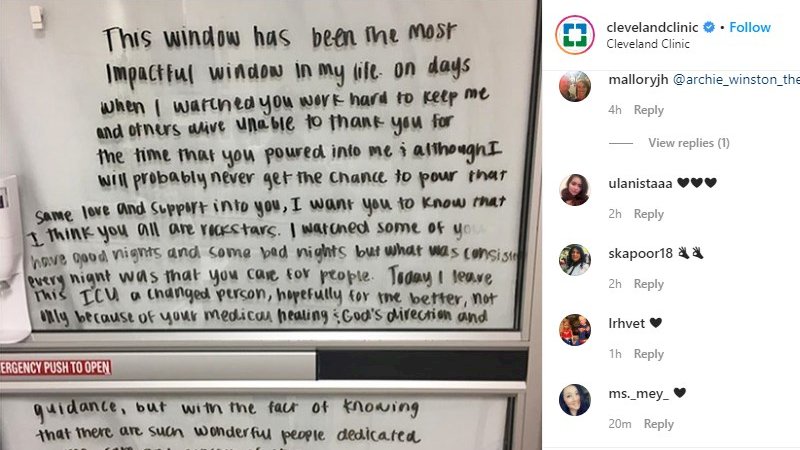 This window has been the most
impactful window in my life. on days
when I watched you work hard to keep me
and others alive unable to thank you for
the time that you poured into me & although I
will probably never get the chance to pour that
same love and support into you, I want you to know that
I think you all are rockstars. I watched some of you
have good nights and some bad nights but what was consis
every night was that you care for people. Today I leave
this ICU a changed person, hopefully for the better, not
only because of your medical healing & God's direction and
ERGENCY PUSH TO OPEN
guidance, but with the fact of knowing
that there are such wonderful people dedicated
clevelandclinic • Follow
Cleveland Clinic
malloryjh @archie_winston_the
4h Reply
View replies (1)
ulanistaaa 🖤🖤🖤
2h Reply
skapoor18 👏👏
2h Reply
lrhvet 🖤
1h Reply
ms._mey_ 🖤
20m Reply